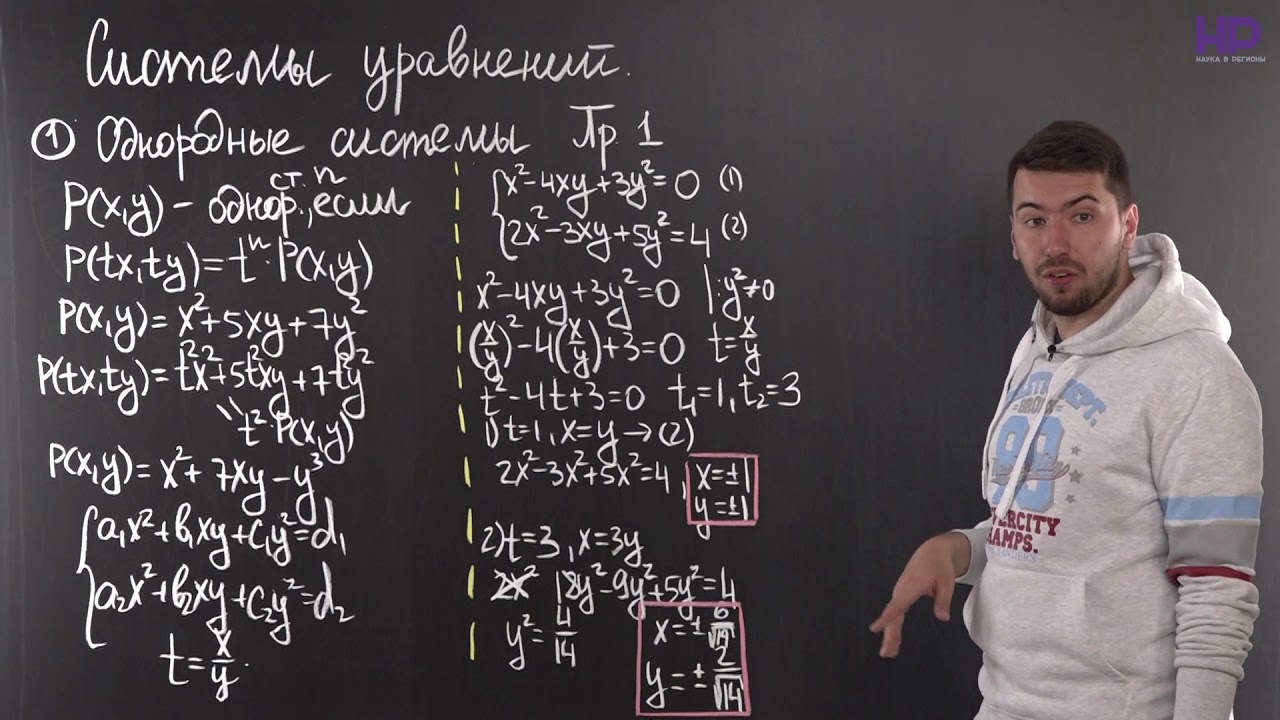 Системы уравнений.
① Однородные системы Пр. 1
P(x,y) - однор. ст. n, если
P(tx,ty)=tⁿ·P(x,y)
P(x,y)=x²+5xy+7y²
P(tx,ty)=t²x²+5t²xy+7t²y²
t²·P(x,y)
P(x,y)=x²+7xy-y³
a₁x²+b₁xy+c₁y²=d₁
a₂x²+b₂xy+c₂y²=d₂
t=x/y.
x²-4xy+3y²=0 (1)
2x²-3xy+5y²=4 (2)
x²-4xy+3y²=0 |:y²≠0
(x/y)²-4(x/y)+3=0 t=x/y
t²-4t+3=0 t₁=1, t₂=3
1) t=1, x=y → (2)
2x²-3x²+5x²=4, x=±1
y=±1
2) t=3, x=3y
2x² 18y²-9y²+5y²=4
y²=4/14
x=±6/√14
y=±2/√14
НР
НАУКА В РЕГИОНЫ
98
VERCITY
HAMPS.